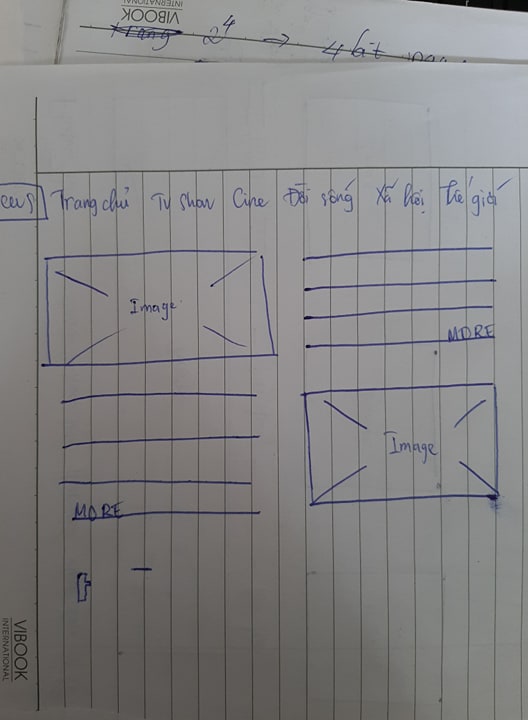 VIBOOK
INTERNATIONAL
Trang 2⁴ → 4 bít
Trang chủ TV Show Cine Đời sống Xã hội Thế giới
Image
MORE
Image
MORE
VIBOOK
INTERNATIONAL